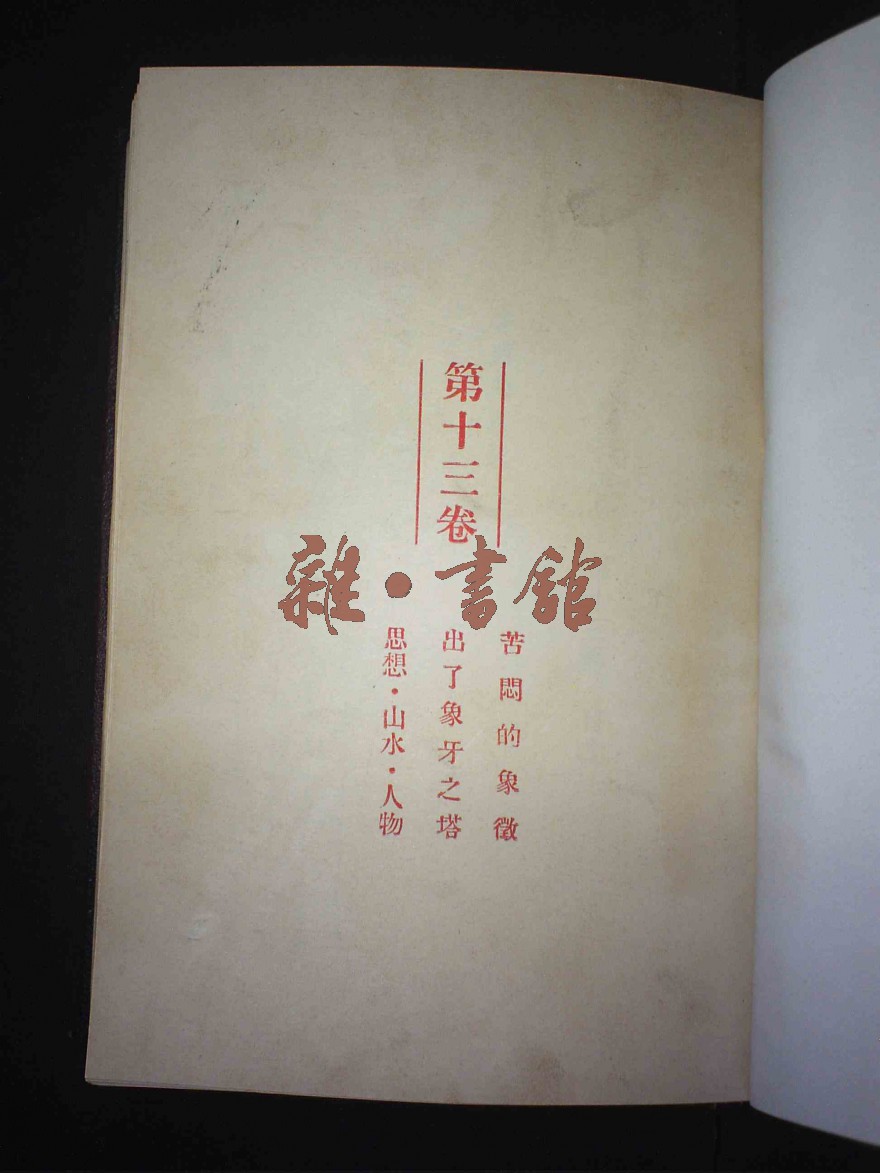 第十三卷
雜·書館
苦悶的象徵
出了象牙之塔
思想·山水·人物